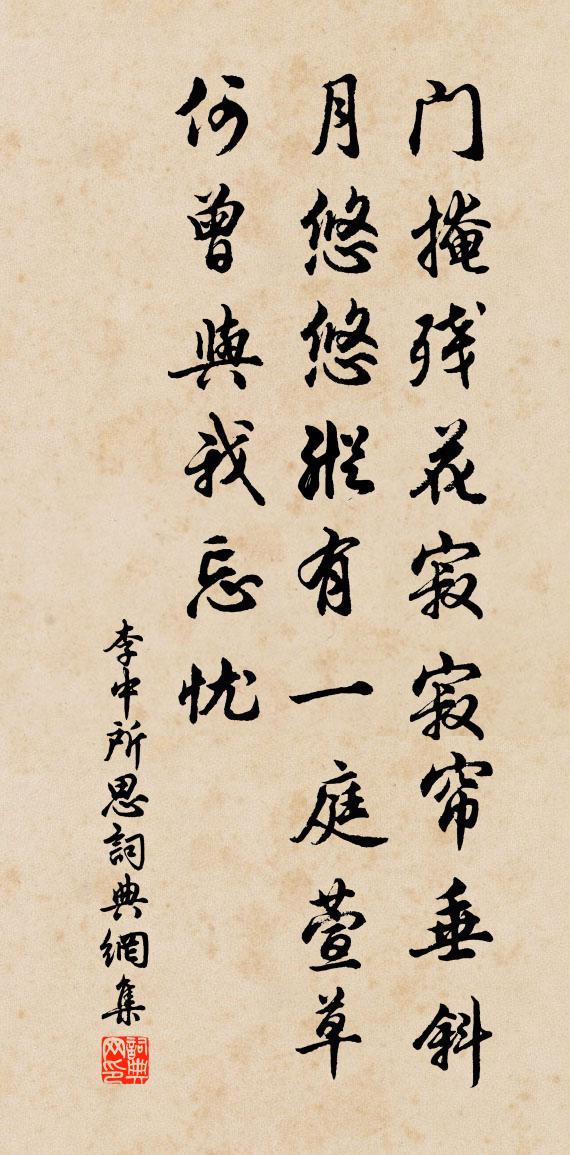 门掩残花寂寂帘垂斜
月悠悠纵有一庭萱草
何曾與我忘忧
李中所思詞典網集
詞典网印